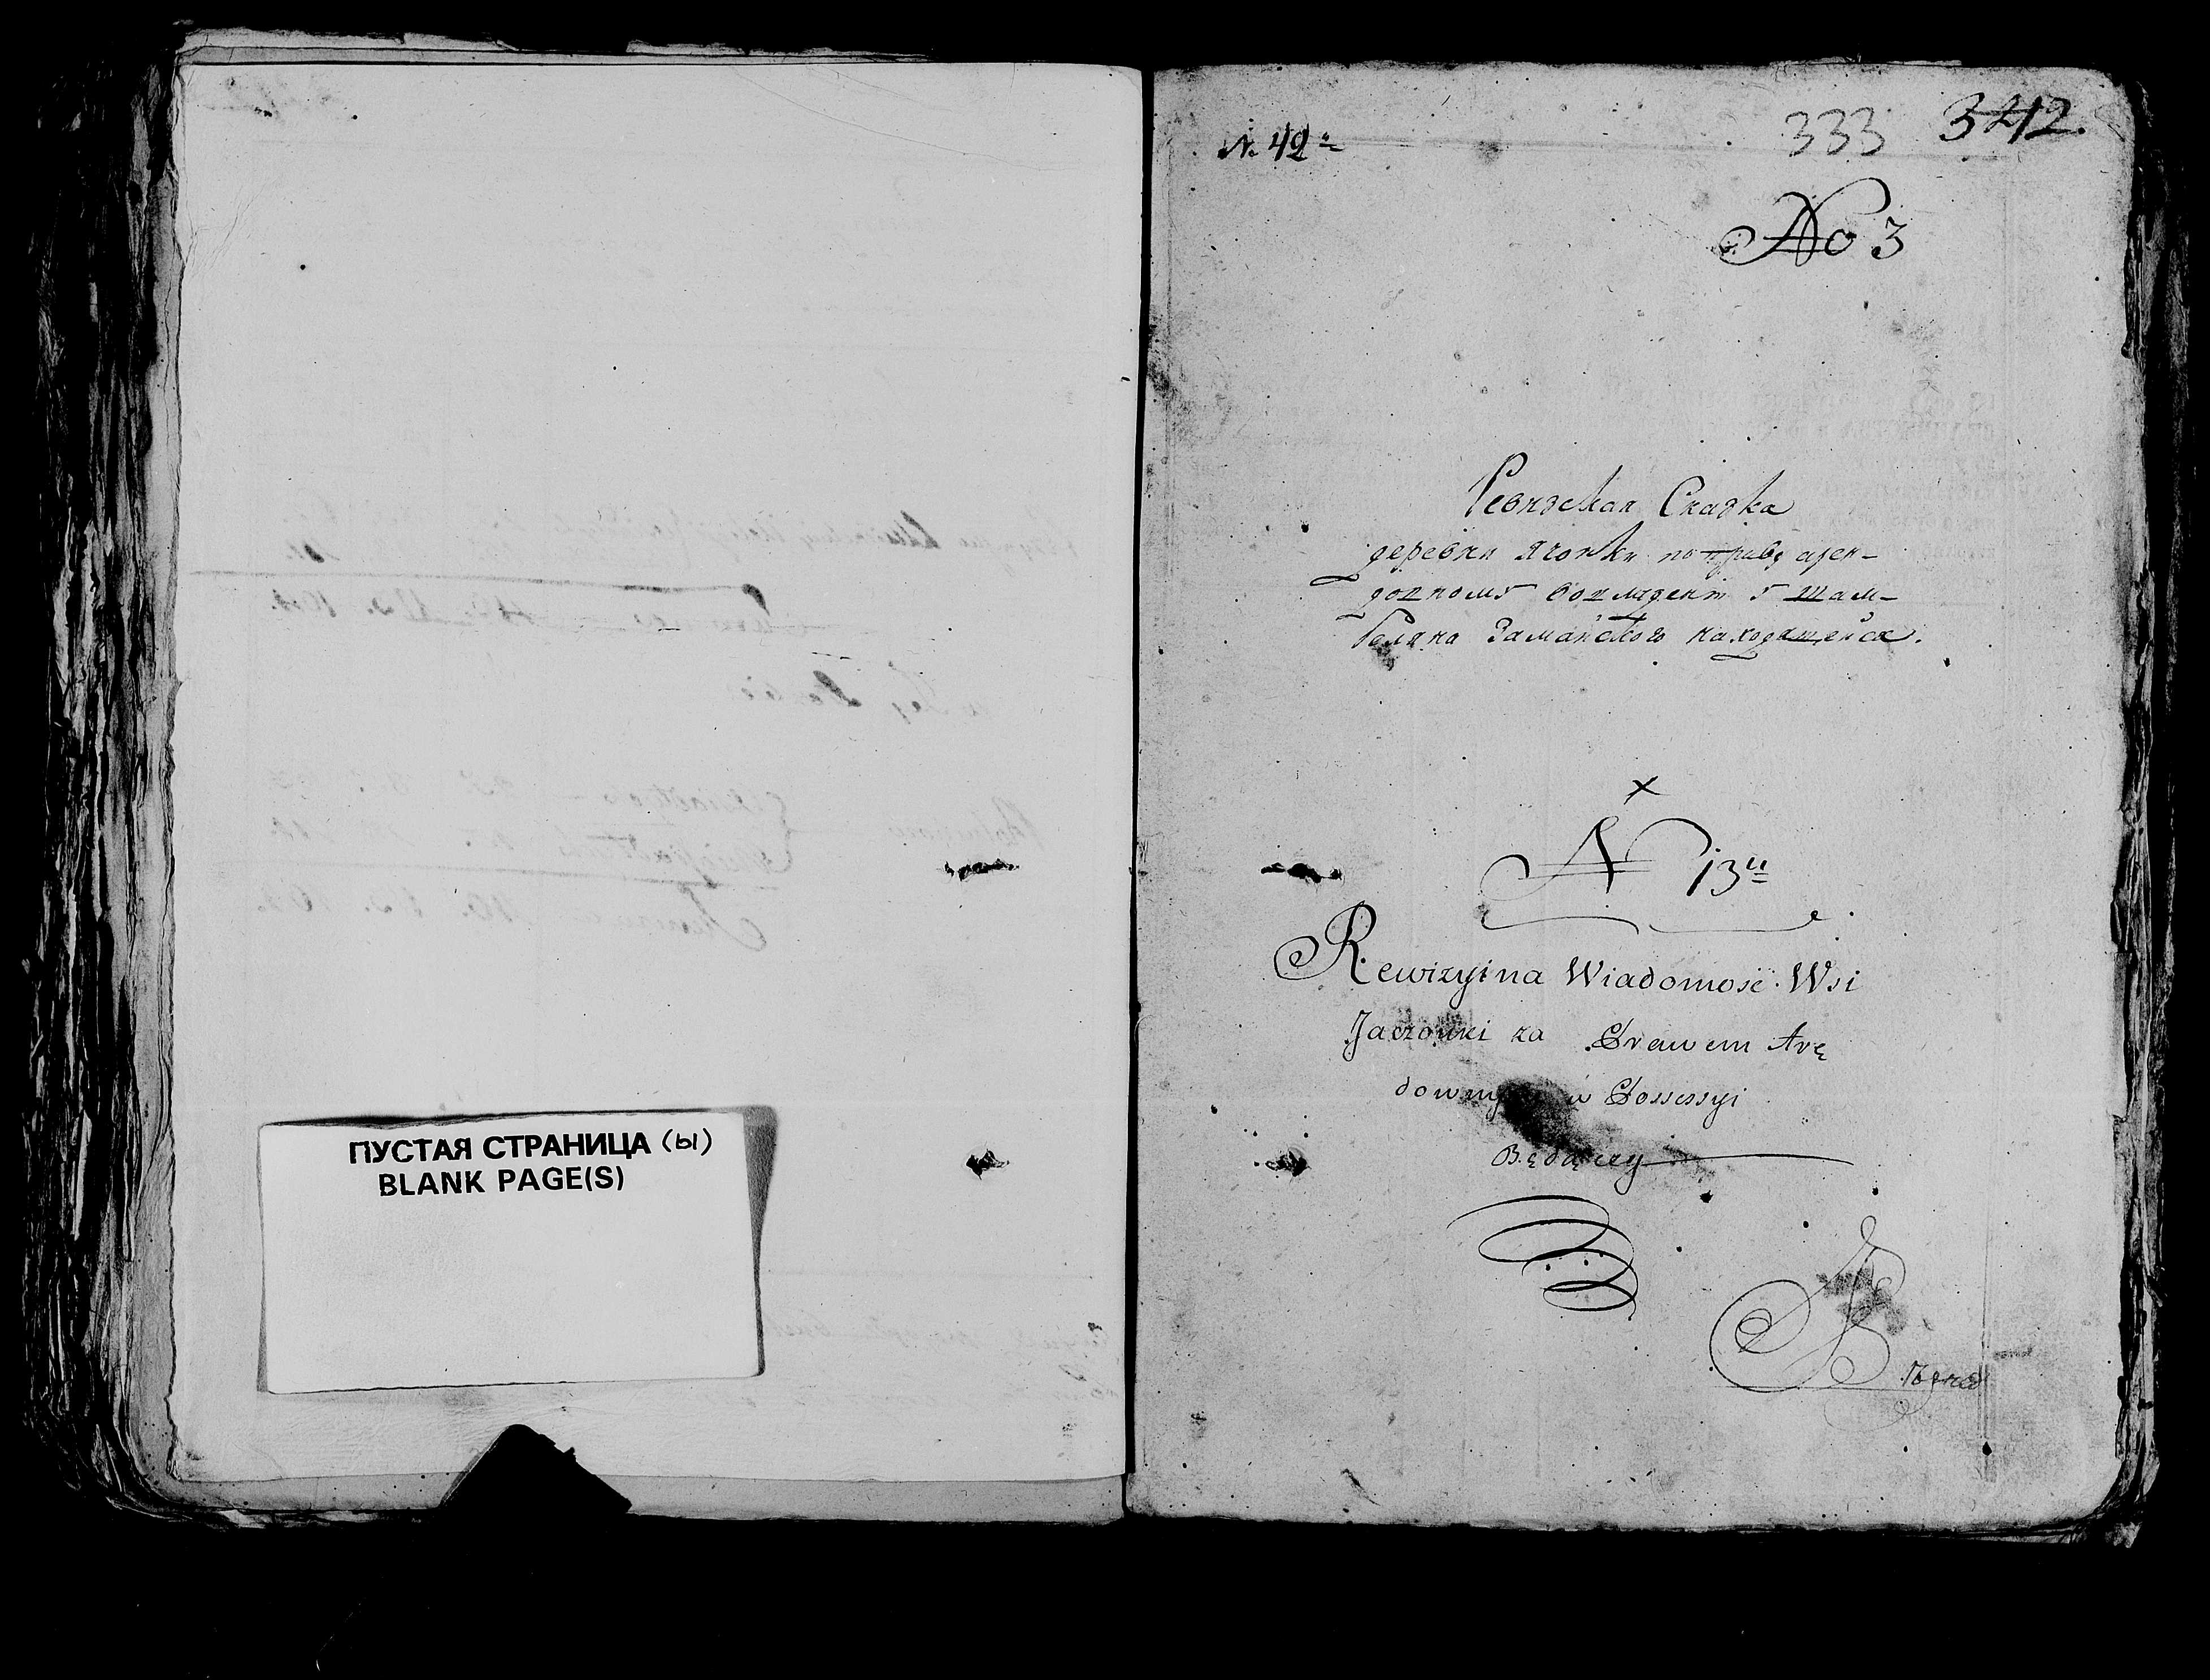 ПУСТАЯ СТРАНИЦА (ы)
BLANK PAGE(S)
N. 42
333 342.
No 3
Ревизская Сказка
деревни Ячовки по праву арен-
довному во владени у Шам-
беляна Заманского находящейся.
x
N 13
Rewizyina Wiadomosć Wsi
Jaczowki za Prawem Arę
downym w Possessyi
Będącey